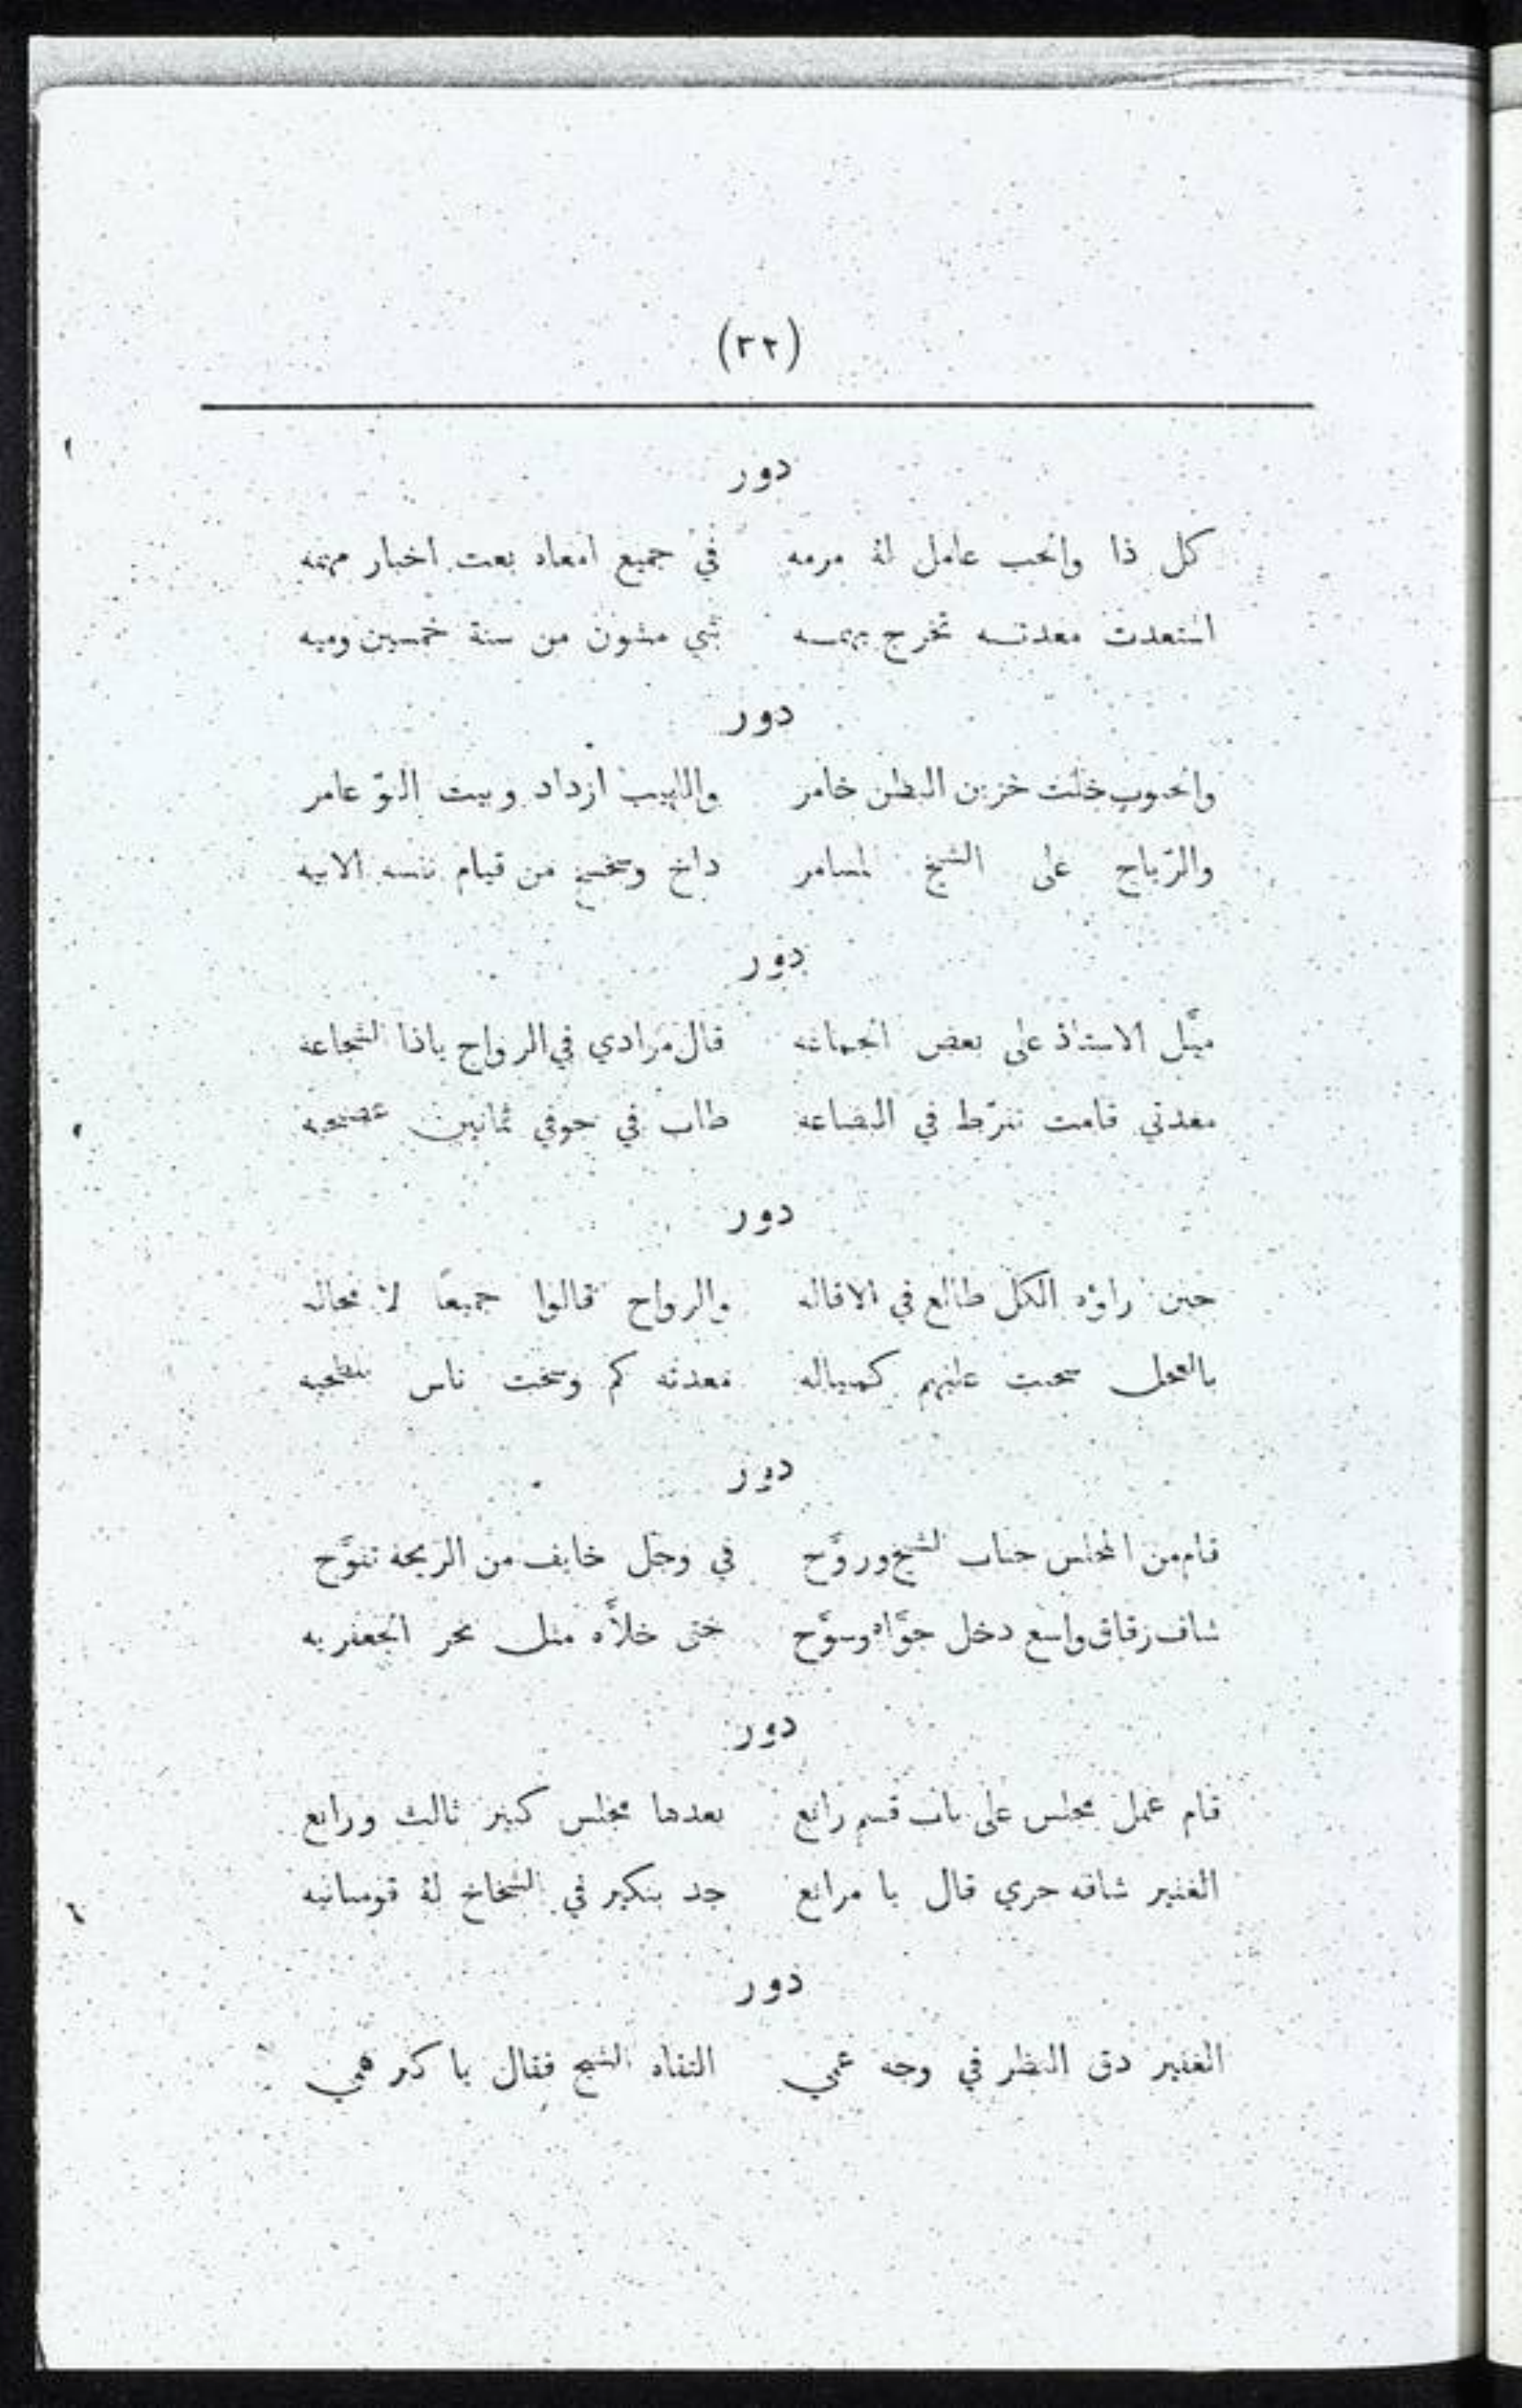 (٣٢)
دور
كل ذا والحب عامل لهُ مرمه في جميع امعاه بعت اخبار مهمه
استعدت معدتــه تخرج بهمــه شي مشون من سنة خمسين وميه
دور
والحبوب خلت خزين البطن خامر واللهيب ازداد وبيت النوّ عامر
والرّياح على الشيخ المسامر داخ وسخسخ من قيام نفسه الابيه
دور
ميَّل الاستاذ على بعض الجماعه قال مرادي في الرواح ياذا الشجاعه
معدتي قامت تفرّط في البضاعه طاب في جوفي ثمانين
دور
حين راوْه الكل طالع في الاقاله والرواح قالوا جميعًا لا محاله
بالعجل سحبت عليهم كمبياله معدته كم وسخت ناس
دور
قام من المجلس جناب الشيخ وروَّح في وجل خايف من الريحة تفوَّح
شاف زقاق واسع دخل جوَّاه وسوَّح حتى خلاَّه مثل بحر الجعفريه
دور
قام عمل مجلس على باب قسم رابع بعدها مجلس كبير ثالث ورابع
الغفير شافه جري قال يا مرابع جد بنكير في الشخاخ لهُ قومبانيه
دور
الغفير دق النظر في وجه عمي التقاه الشيخ فقال يا كتر همي